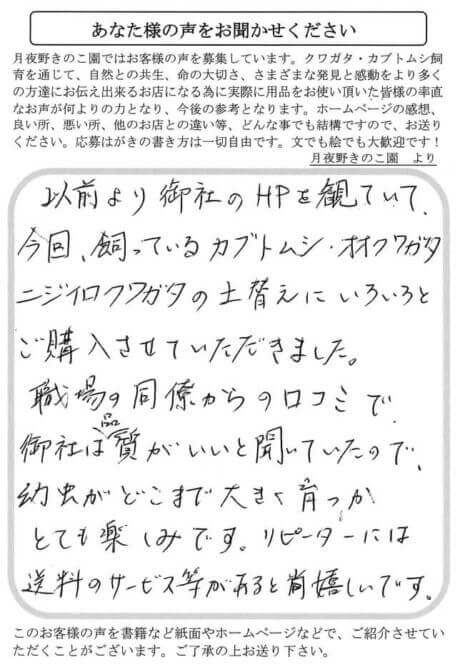 あなた様の声をお聞かせください
月夜野きのこ園ではお客様の声を募集しています。クワガタ・カブトムシ飼
育を通じて、自然との共生、命の大切さ、さまざまな発見と感動をより多く
の方達にお伝え出来るお店になる為に実際に用品をお使い頂いた皆様の率直
なお声が何よりの力となり、今後の参考となります。ホームページの感想、
良い所、悪い所、他のお店との違い等、どんな事でも結構ですので、お送り
ください。応募はがきの書き方は一切自由です。文でも絵でも大歓迎です！
月夜野きのこ園　より
以前より御社のHPを観ていて、
今回、飼っているカブトムシ・オオクワガタ
ニジイロクワガタの土替えにいろいろと
ご購入させていただきました。
職場の同僚からの口コミで
御社は品質がいいと聞いていたので、
幼虫がどこまで大きく育つか
とても楽しみです。リピーターには
送料のサービス等があると尚嬉しいです。
このお客様の声を書籍など紙面やホームページなどで、ご紹介させてい
ただくことがございます。ご了承の上お送り下さい。